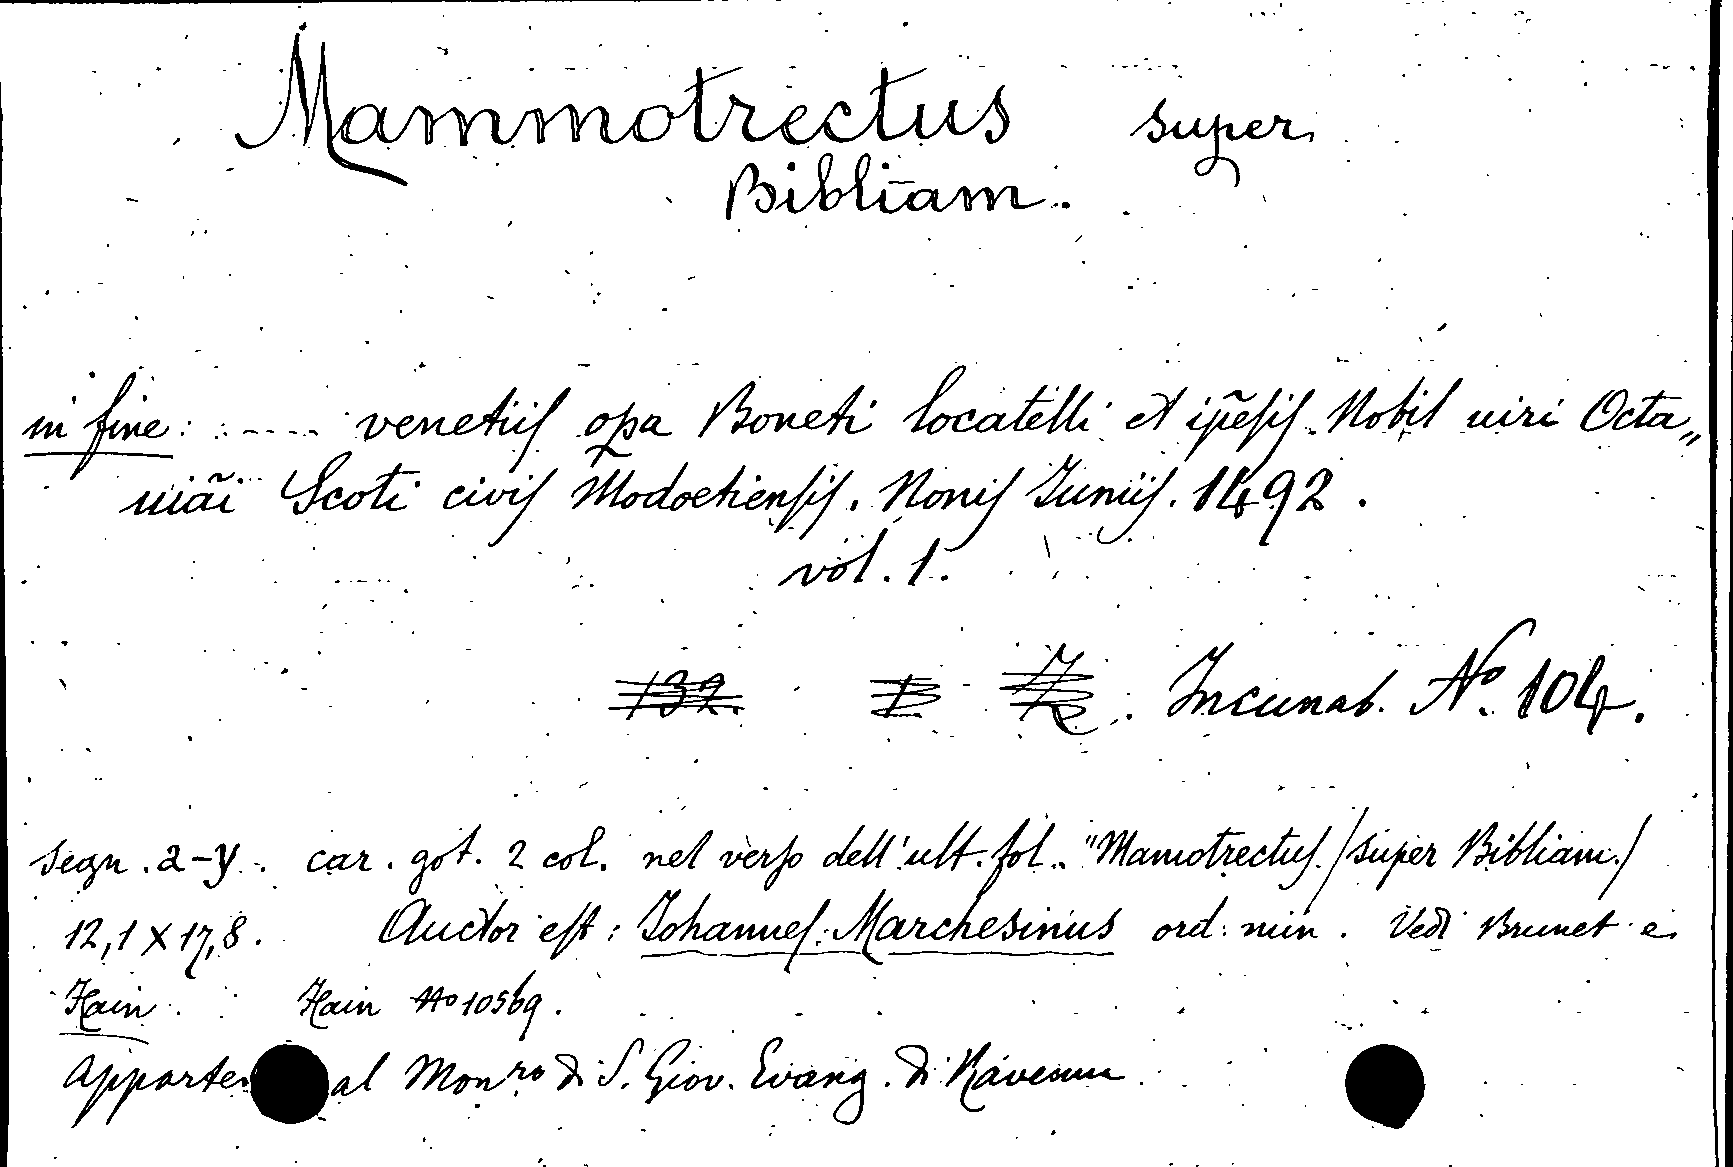 Mammotrectus super
Bibliam.
in fine: ..---- venetiis opa Boneti locatelli et ipẽsis Nobil uiri Octa„
uiãi Scoti civis Modoetiensis. Nonis Juniis. 1492.
vol. 1.
132. 1 Incunab. No. 104.
segn. a-y. car. got. 2 col. nel verso dell'ult. fol. "Mamotrectus./super Bibliam./
12,1 X 17,8. Auctor est: Johannes Marchesinus ord. min. Vedi Brunet e
Hain. Hain No 10569.
Apparte al Monro di S. Giov. Evang. di Ravenna